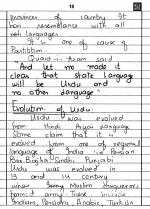 15
province of country. It
has resemblance with all
other languages.
It is one of cause of
Partition.
Quaid-i-Azam said
And let me make it
clear that state language
will be Urdu and
no other language.
Evolution of Urdu:
Urdu was evolved
from Hindi Aryai language
Some claim that it is
evolved from one of regional
language of India i.e Persian
Pak Bangla Sindhi Punjabi
Urdu was evolved in
13 and 14 century
when Many Muslim
army Turk
Indians, Persians, Arabic Turkish